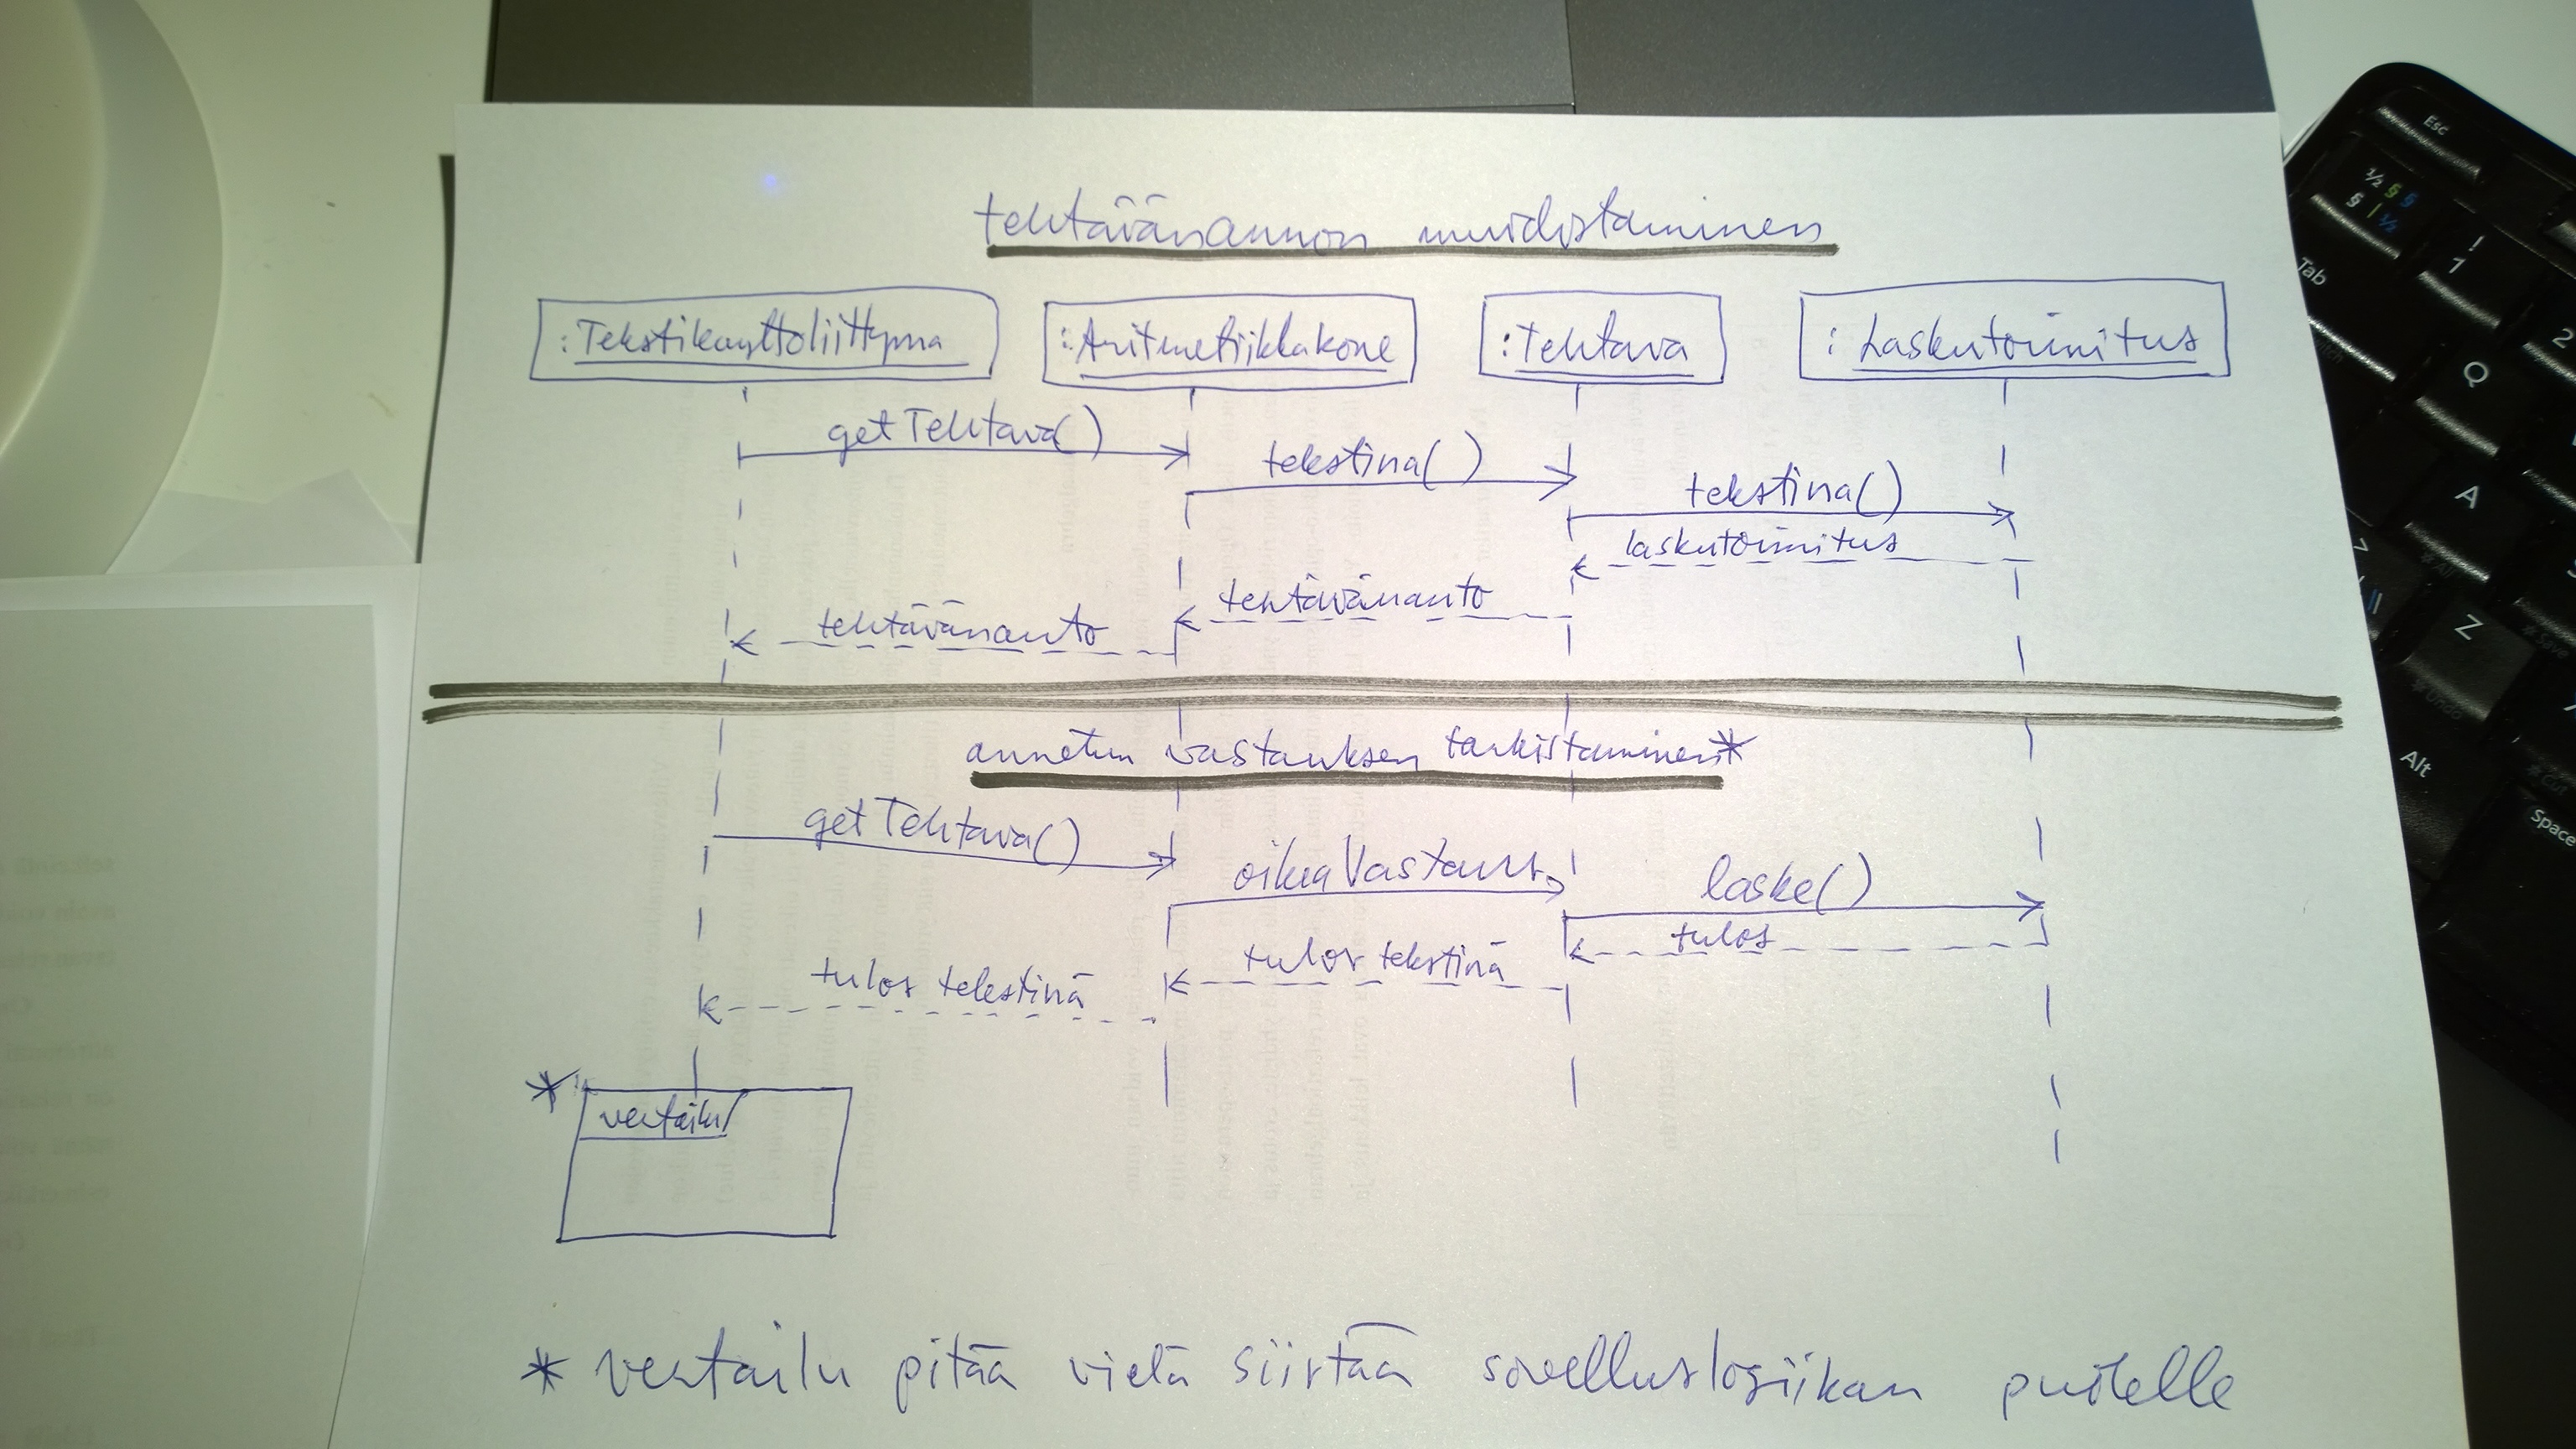 tehtävänannon muodostaminen
:Tekstikayttoliittyma :Aritmetiikkakone :Tehtava :Laskutoimitus
getTehtava()
tekstina()
tekstina()
laskutoimitus
tehtävänanto
tehtävänanto
annetun vastauksen tarkistaminen*
getTehtava()
oikeaVastaus
laske()
tulos
tulos tekstinä
tulos tekstinä
* vertailu
* vertailu pitää vielä siirtää sovelluslogiikan puolelle
Esc
½ § §
§ | ½
Tab
!
1
2
Q
A
Z
Alt
Space